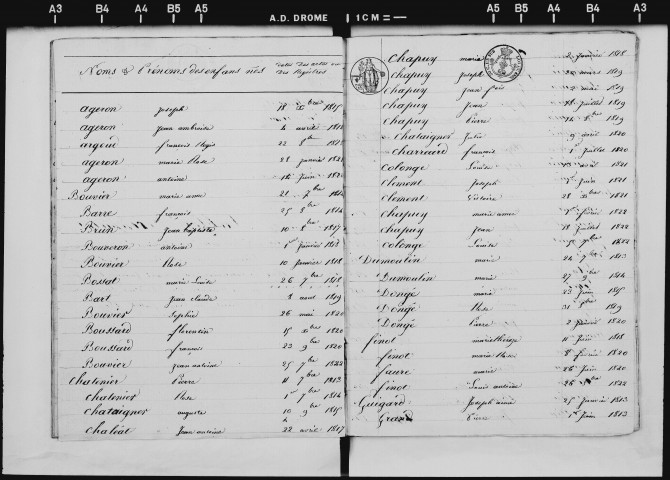 A3 B4 A4 B5 A5 A.D. DROME 1 CM A5 B5 A4 B4 A3
Noms & Prénoms des enfans nés
dates des actes ou des Registres
ageron joseph 18 xbre 1815
ageron jean ambroise 4 avril
argoud françois Regis 22 8bre
ageron marie Rose 28 janvier 1822
ageron antoine 14 juin
Bouvier marie anne 21 7bre
Barre françois 25 8bre 1814
Brun Jean Baptiste 10 8bre 1817
Bouveron antoine 1er janvier 1818
Bouvier Rose 10 janvier 1818
Bossat marie Louise 26 7bre 1818
Bart jean claude 8 aout 1819
Bouvier Sophie 26 mai 1820
Boussard florentin 15 xbre 1820
Boussard françois 23 9bre 1820
Bouvier jean antoine 25 7bre 1822
Chatenier Pierre 11 7bre 1813
chatenier Rose 1er 7bre 1814
chataigner auguste 10 9bre 1815
chaléat jean antoine 22 avril 1817
Chapuy marie 2 janvier 1818
chapuy joseph mars 1819
chapuy jean fois mai 1819
chapuy jean juillet 1819
Chapuy Pierre 8bre 1819
Chataigner Julie 9 avril 1820
Charriard françois 1er juillet 1820
Colonge Louise 1821
Clement Joseph 1er juin 1821
Clement Victoire 28 xbre 1821
chapuy marie anne février 1822
chapuy jean 18 juillet 1822
Colonge Louise 7bre 1822
Dumoulin marie 24 7bre 1813
Dumoulin marie 27 9bre 1814
Dongé marie 23 juin 1815
Dongé Rose 31 1819
Dongé Pierre 2 janvier 1820
finot marie thérèse 11 juin 1818
finot marie Rose 8 février 1820
faure marie 26 juin 1820
finot Louis antoine 26 xbre 1822
Guigard Joseph aimé 25 janvier 1813
Grand Pierre 1er juin 1813
A3 B4 A4 B5 A5 A5 B5 A4 B4 A3